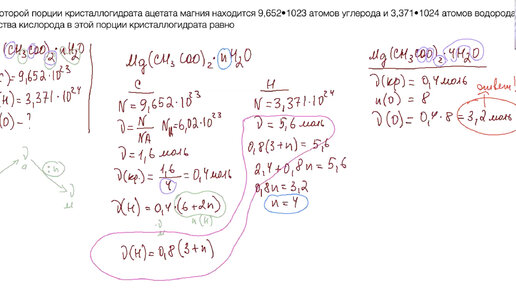 оторой порции кристаллогидрата ацетата магния находится 9,652•1023 атомов углерода и 3,371•1024 атомов водорода
ства кислорода в этой порции кристаллогидрата равно
(CH3COO)2·nH2O
C)=9,652·10^23
(H)=3,371·10^24
(O)-?
ν
:n
ν
Mg(CH3COO)2·nH2O
C
N=9,652·10^23
ν=N/NA NA=6,02·10^23
ν=1,6 моль
ν(кр)=1,6/4=0,4моль
ν(H)=0,4·(6+2n)
n(H)
ν(H)=0,8(3+n)
H
N=3,371·10^24
ν=5,6 моль
0,8(3+n)=5,6
2,4+0,8n=5,6
0,8n=3,2
n=4
Mg(CH3COO)2·4H2O
ν(кр)=0,4моль
n(O)=8
ν(O)=0,4·8=3,2 моль
ответ!